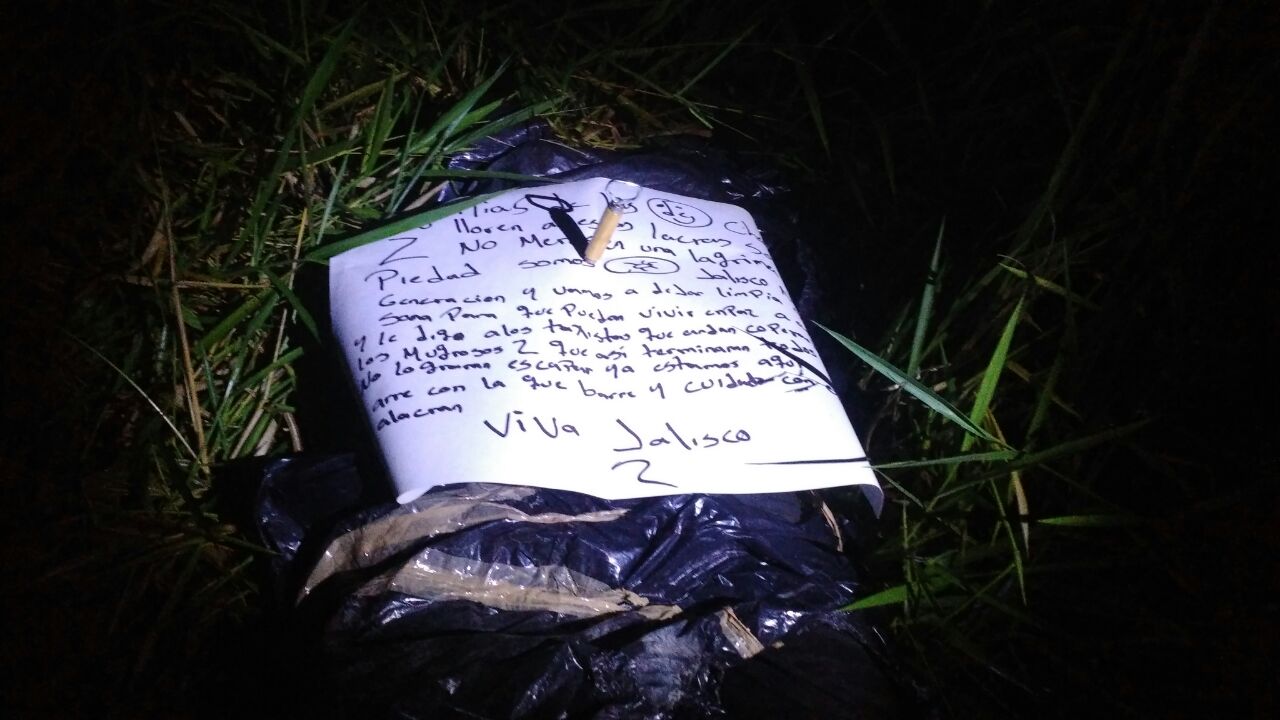 lloren a esas lacras
Z No una lagrim
Piedad somos Jalisco
Generacion y vamos a dejar limpia
sana Para que Puedan vivir enpaz a
y le digo alos taxistas que andan con
los Mugrosos Z que asi terminaran
No lograran escapar ya estamos aquí
arre con la que barre y cuidado con
alacran
Viva Jalisco
Z